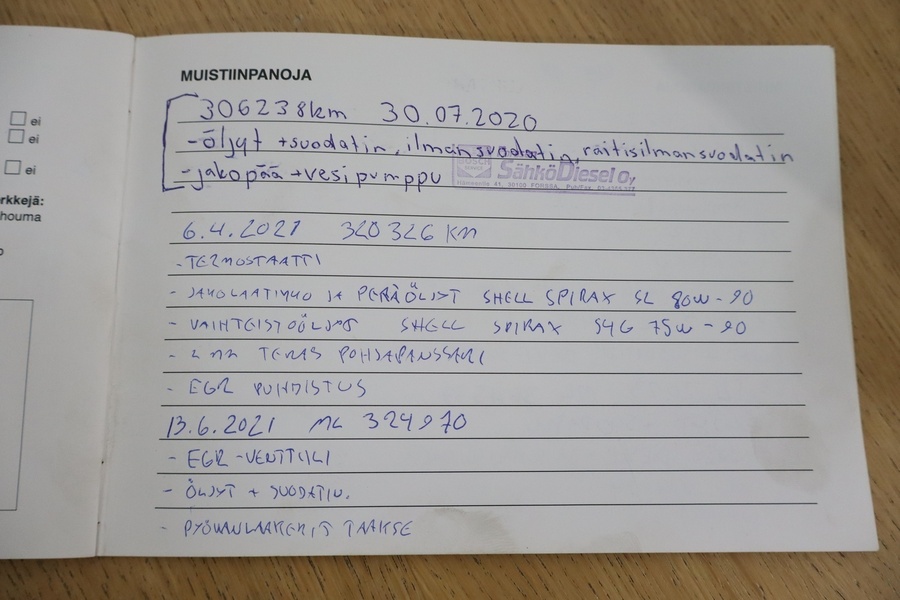 ei
ei
ei
rkkejä:
houma
MUISTIINPANOJA
306238km 30.07.2020
-öljyt +suodatin, ilmansuodatin, raitisilmansuodatin
-jakopää +vesipumppu
BOSCH
SähköDiesel Oy
41, 30100 FORSSA,
6.4.2021 320326 KM
-TERMOSTAATTI
- JAKOLAATIKKO JA PERÄÖLJYT SHELL SPIRAX SL 80W-90
- VAIHTEISTOÖLJYT SHELL SPIRAX S4G 75W-90
- 2 MM TERÄS POHJAPANSSARI
- EGR PUHDISTUS
13.6.2021 ML 324970
- EGR-VENTTIILI
- ÖLJYT + SUODATIN.
- PYÖRÄNLAAKERIT TAAKSE